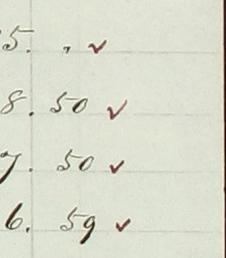 5. " ✓
8. 50 ✓
7. 50 ✓
6. 59 ✓